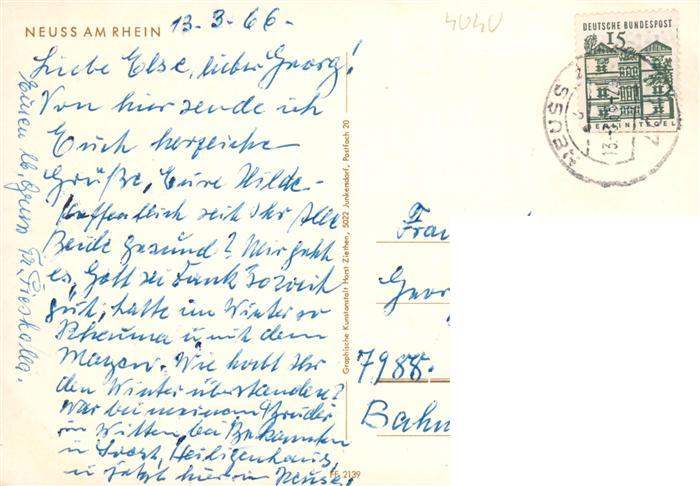 NEUSS AM RHEIN
13.3.66.
4040
Liebe Else, lieber Georg!
Von hier sende ich
Euch herzliche
Grüße, Eure Hilde.
Hoffentlich seid Ihr Alle
Beide gesund? Mir geht
es, Gott sei Dank soweit
gut, hatte im Winter so
Rheuma u. mit dem
Magen. Wie habt Ihr
den Winter überstanden?
War bei meinem Bruder
in Witten, bei Bekannten
in Soest, Heiligenhaus,
u. jetzt hier in Neuss.
Einen lb. Gruss
Graphische Kunstanstalt Horst Ziethen, 5022 Junkersdorf, Postfach 20
FE 2139
DEUTSCHE BUNDESPOST
15
BERLIN-TEGEL
NEUSS
Frau
Geor
7988.
Bahn